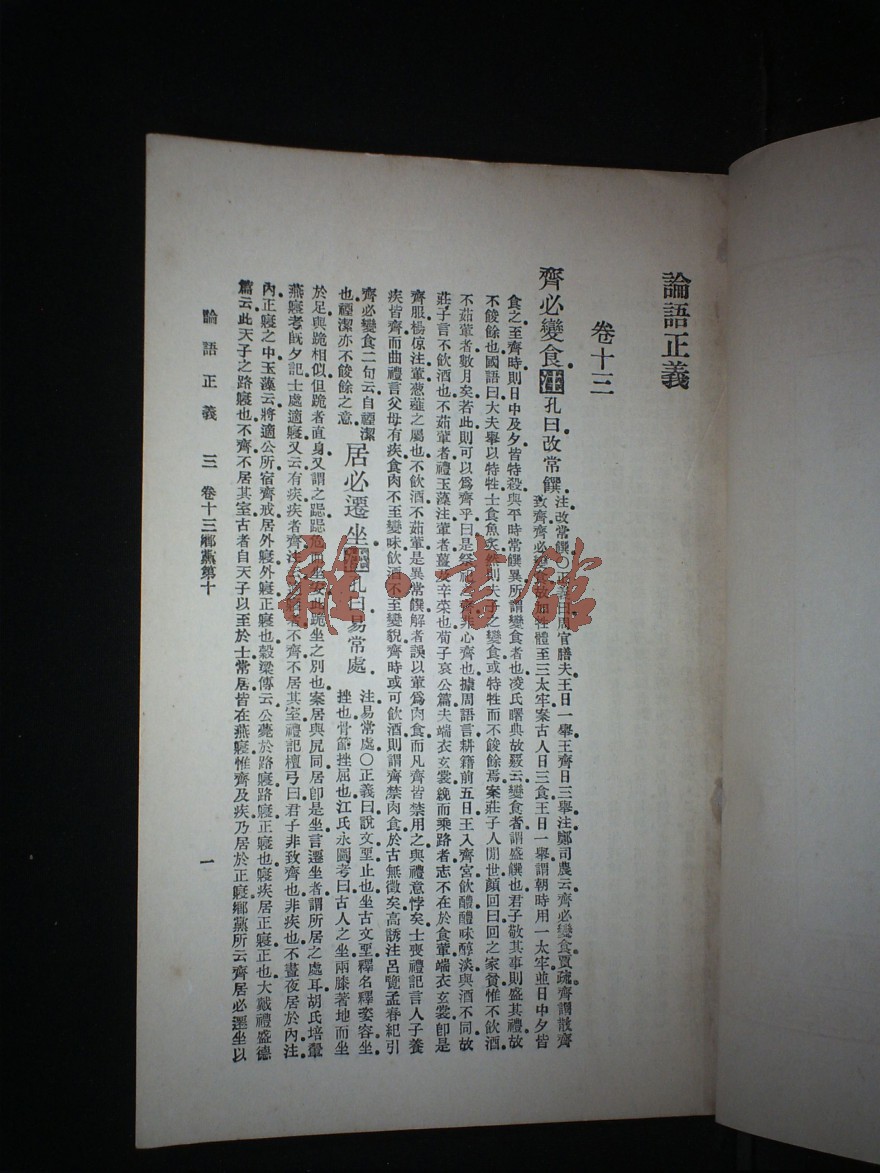 論語正義
卷十三
齊必變食 注 孔曰改常饌
注改常饌○正義曰周官膳夫王日一舉王齊日三舉注鄭司農云齊必變食賈疏齊謂散齊
致齊齊必變食故加牲體至三太牢案古人日三食王日一舉謂朝時用一太牢並日中夕皆
食之至齊時則日中及夕皆特殺與平時常饌異所謂變食者也凌氏曙典故覈云變食者謂盛饌也君子敬其事則盛其禮故
不餕餘也國語曰大夫舉以特牲士食魚炙然則夫子之變食或特牲而不餕餘焉案莊子人閒世顏回曰回之家貧惟不飲酒
不茹葷者數月矣若此則可以爲齊乎曰是祭祀之齊非心齊也據周語言耕籍前五日王入齊宮飲醴醴味醇淡與酒不同故
莊子言不飲酒也不茹葷者禮玉藻注葷者薑及辛菜也荀子哀公篇夫端衣玄裳絻而乘路者志不在於食葷端衣玄裳卽是
齊服楊倞注葷蔥薤之屬也不飲酒不茹葷是異常饌解者誤以葷爲肉食而凡齊皆禁用之與禮意悖矣士喪禮記言人子養
疾皆齊而曲禮言父母有疾食肉不至變味飲酒不至變貌齊時或可飲酒則謂齊禁肉食於古無徵矣高誘注呂覽孟春紀引
齊必變食二句云自禋潔
也禋潔亦不餕餘之意
居必遷坐 注 孔曰易常處
注易常處○正義曰說文坐止也坐古文坐釋名釋姿容坐
挫也骨節挫屈也江氏永圖考曰古人之坐兩膝著地而坐
於足與跪相似但跪者直身又謂之跽跽危而坐安此跪坐之別也案居與凥同居卽是坐言遷坐者謂所居之處耳胡氏培翬
燕寢考旣夕記士處適寢又云有疾疾者齊注云適寢者不齊不居其室禮記檀弓曰君子非致齊也非疾也不晝夜居於內注
內正寢之中玉藻云將適公所宿齊戒居外寢外寢正寢也穀梁傳云公薨於路寢路寢正寢也寢疾居正寢正也大戴禮盛德
篇云此天子之路寢也不齊不居其室古者自天子以至於士常居皆在燕寢惟齊及疾乃居於正寢鄉黨所云齊居必遷坐以
論語正義 三 卷十三鄉黨第十
一
雅書館